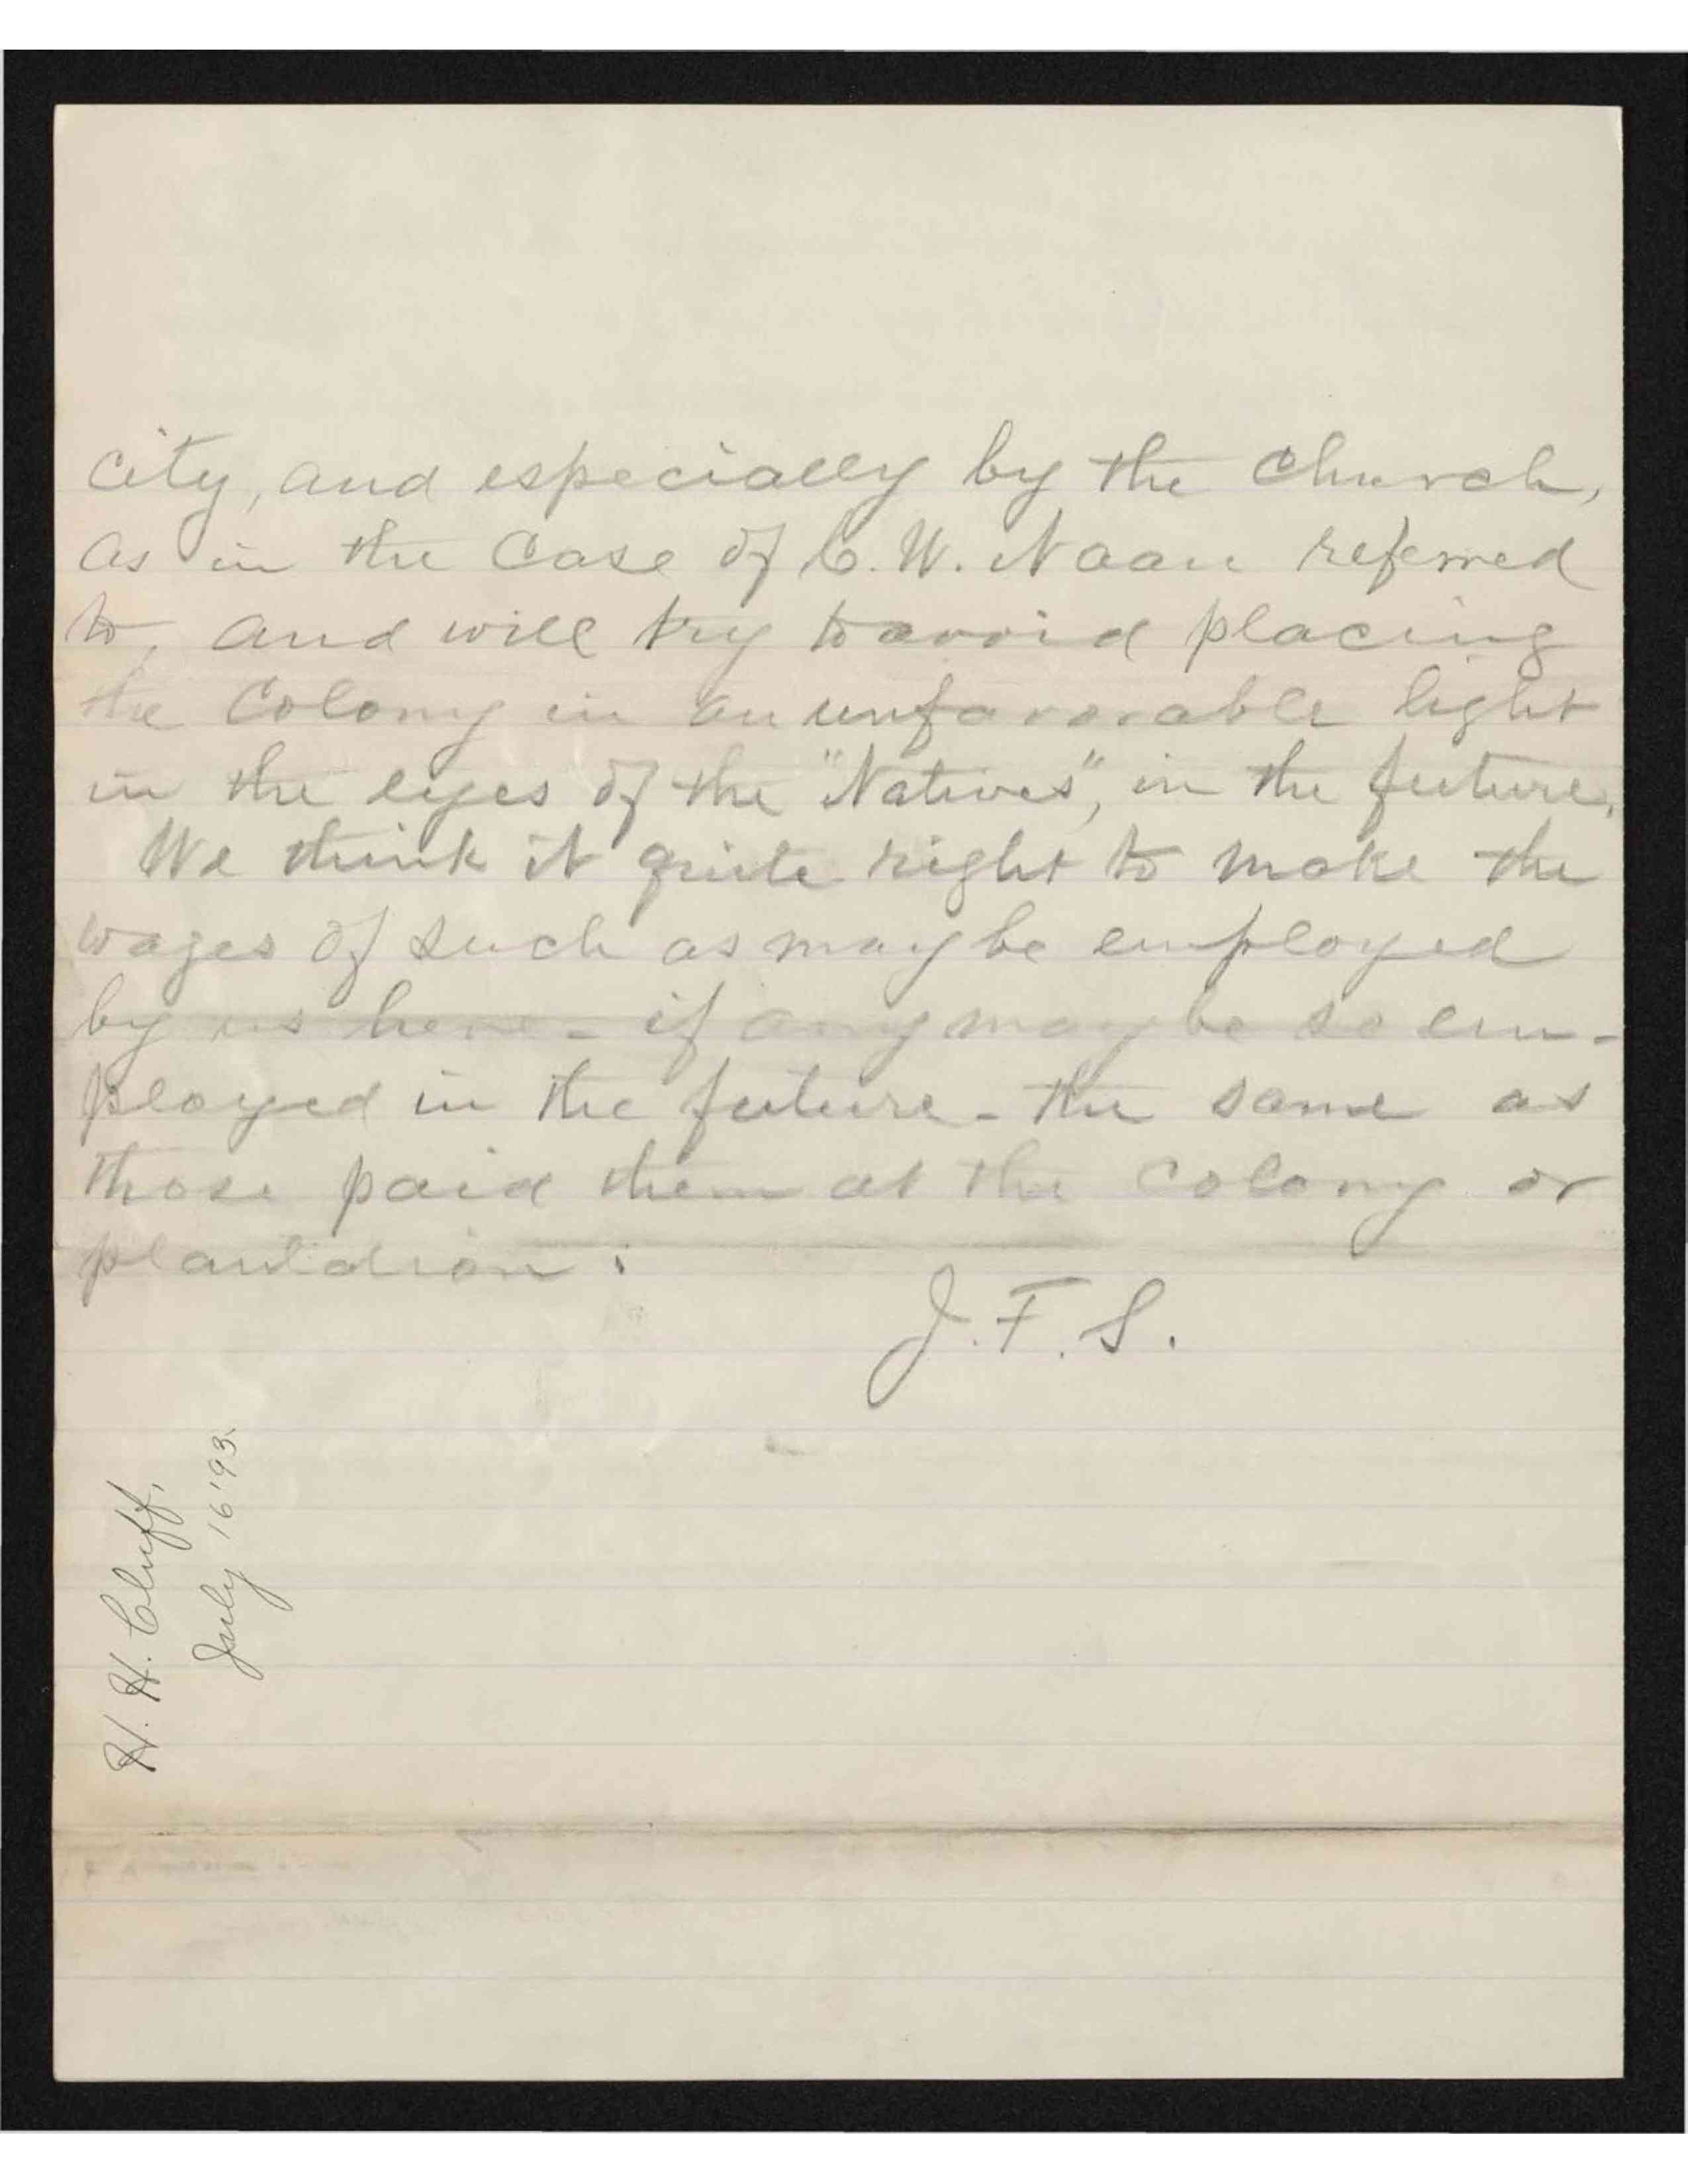 city, and especially by the Church,
as in the case of C. W. Naau referred
to, and will try to avoid placing
the Colony in an unfavorable light
in the eyes of the "Natives", in the future.
We think it quite right to make the
wages of such as may be employed
by us here - if any may be so em-
ployed in the future - the same as
those paid them at the Colony or
plantation.
J. F. S.
H. H. Cluff,
July 16 '93.